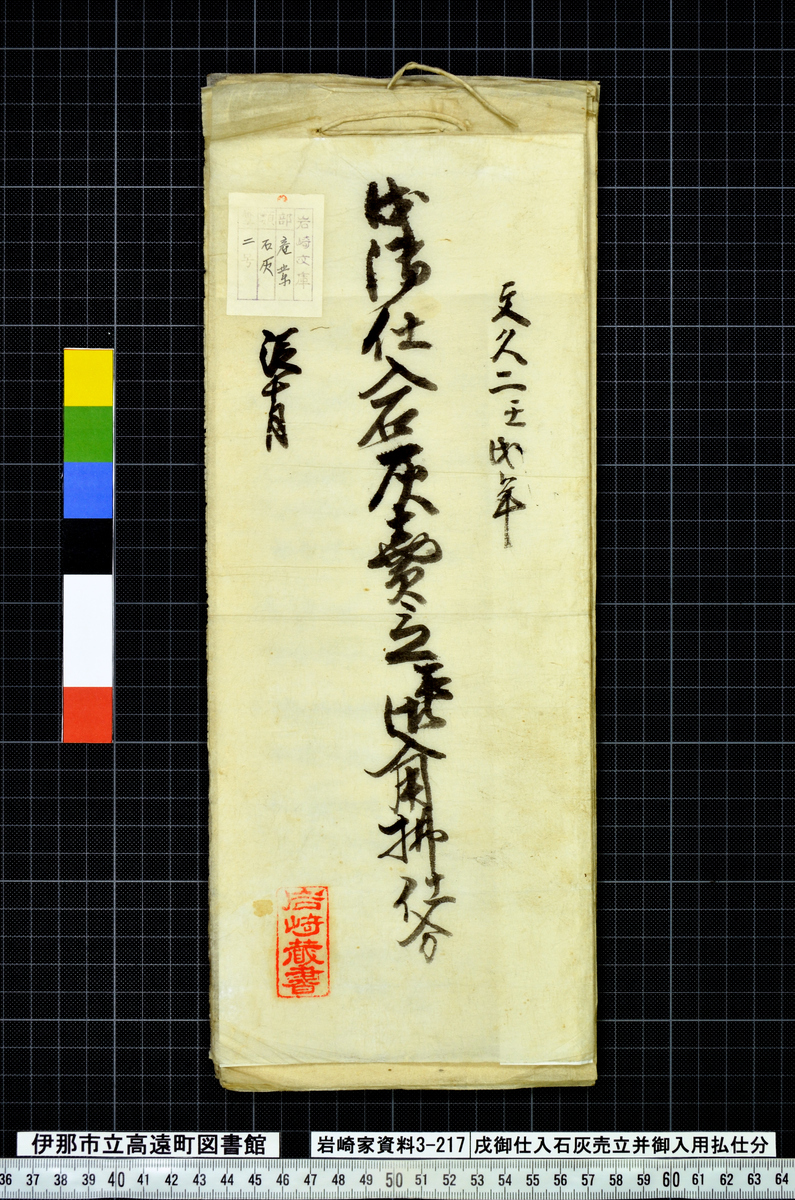 文久二壬戌年
戌御仕入石灰賣立并御入用拂仕分
従十月
岩崎文庫
部 産業
石灰
二号
岩崎蔵書
伊那市立高遠町図書館
岩崎家資料3-217
戌御仕入石灰売立并御入用払仕分
36 37 38 39 40 41 42 43 44 45 46 47 48 49 50 51 52 53 54 55 56 57 58 59 60 61 62 63 64